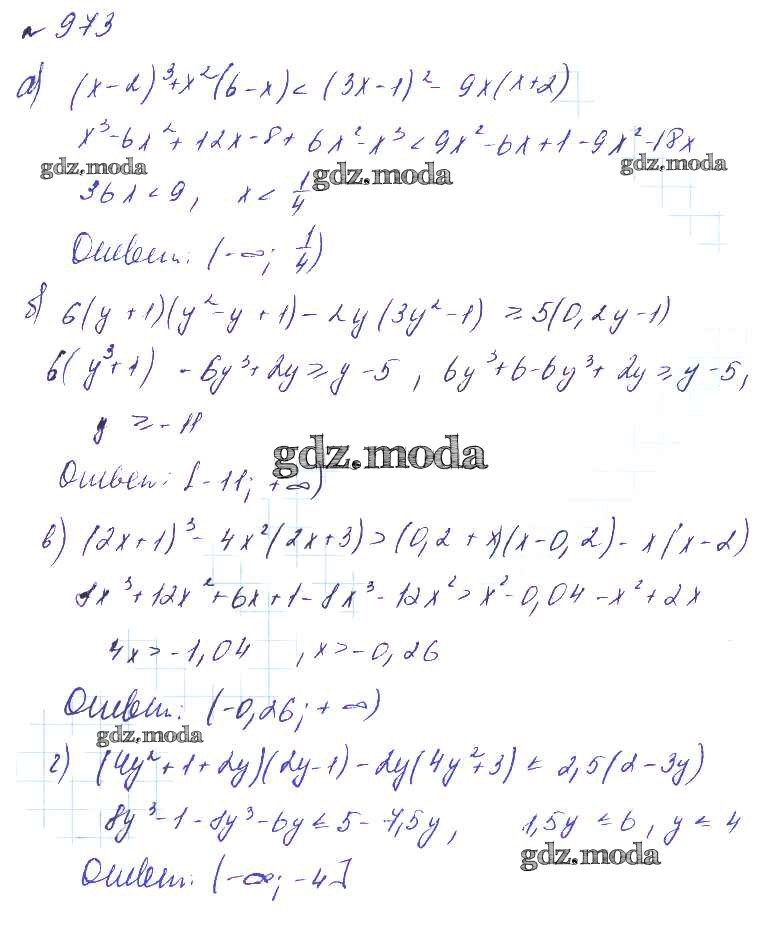 № 973
а) (x-2)³+x²(6-x) < (3x-1)² - 9x(x+2)
x³-6x²+12x-8+6x²-x³ < 9x²-6x+1-9x²-18x
gdz.moda gdz.moda gdz.moda
36x < 9, x < 1/4
Ответ: (-∞; 1/4)
б) 6(y+1)(y²-y+1) - 2y(3y²-1) ≥ 5(0,2y-1)
6(y³+1) - 6y³+2y ≥ y-5, 6y³+6-6y³+2y ≥ y-5,
y ≥ -11
gdz.moda
Ответ: [-11; +∞)
в) (2x+1)³ - 4x²(2x+3) > (0,2+x)(x-0,2) - x(x-2)
8x³+12x²+6x+1-8x³-12x² > x²-0,04-x²+2x
4x > -1,04, x > -0,26
Ответ: (-0,26; +∞)
gdz.moda
г) (4y²+1+2y)(2y-1) - 2y(4y²+3) ≤ 2,5(2-3y)
8y³-1-8y³-6y ≤ 5-7,5y, 1,5y ≤ 6, y ≤ 4
gdz.moda
Ответ: (-∞; -4]